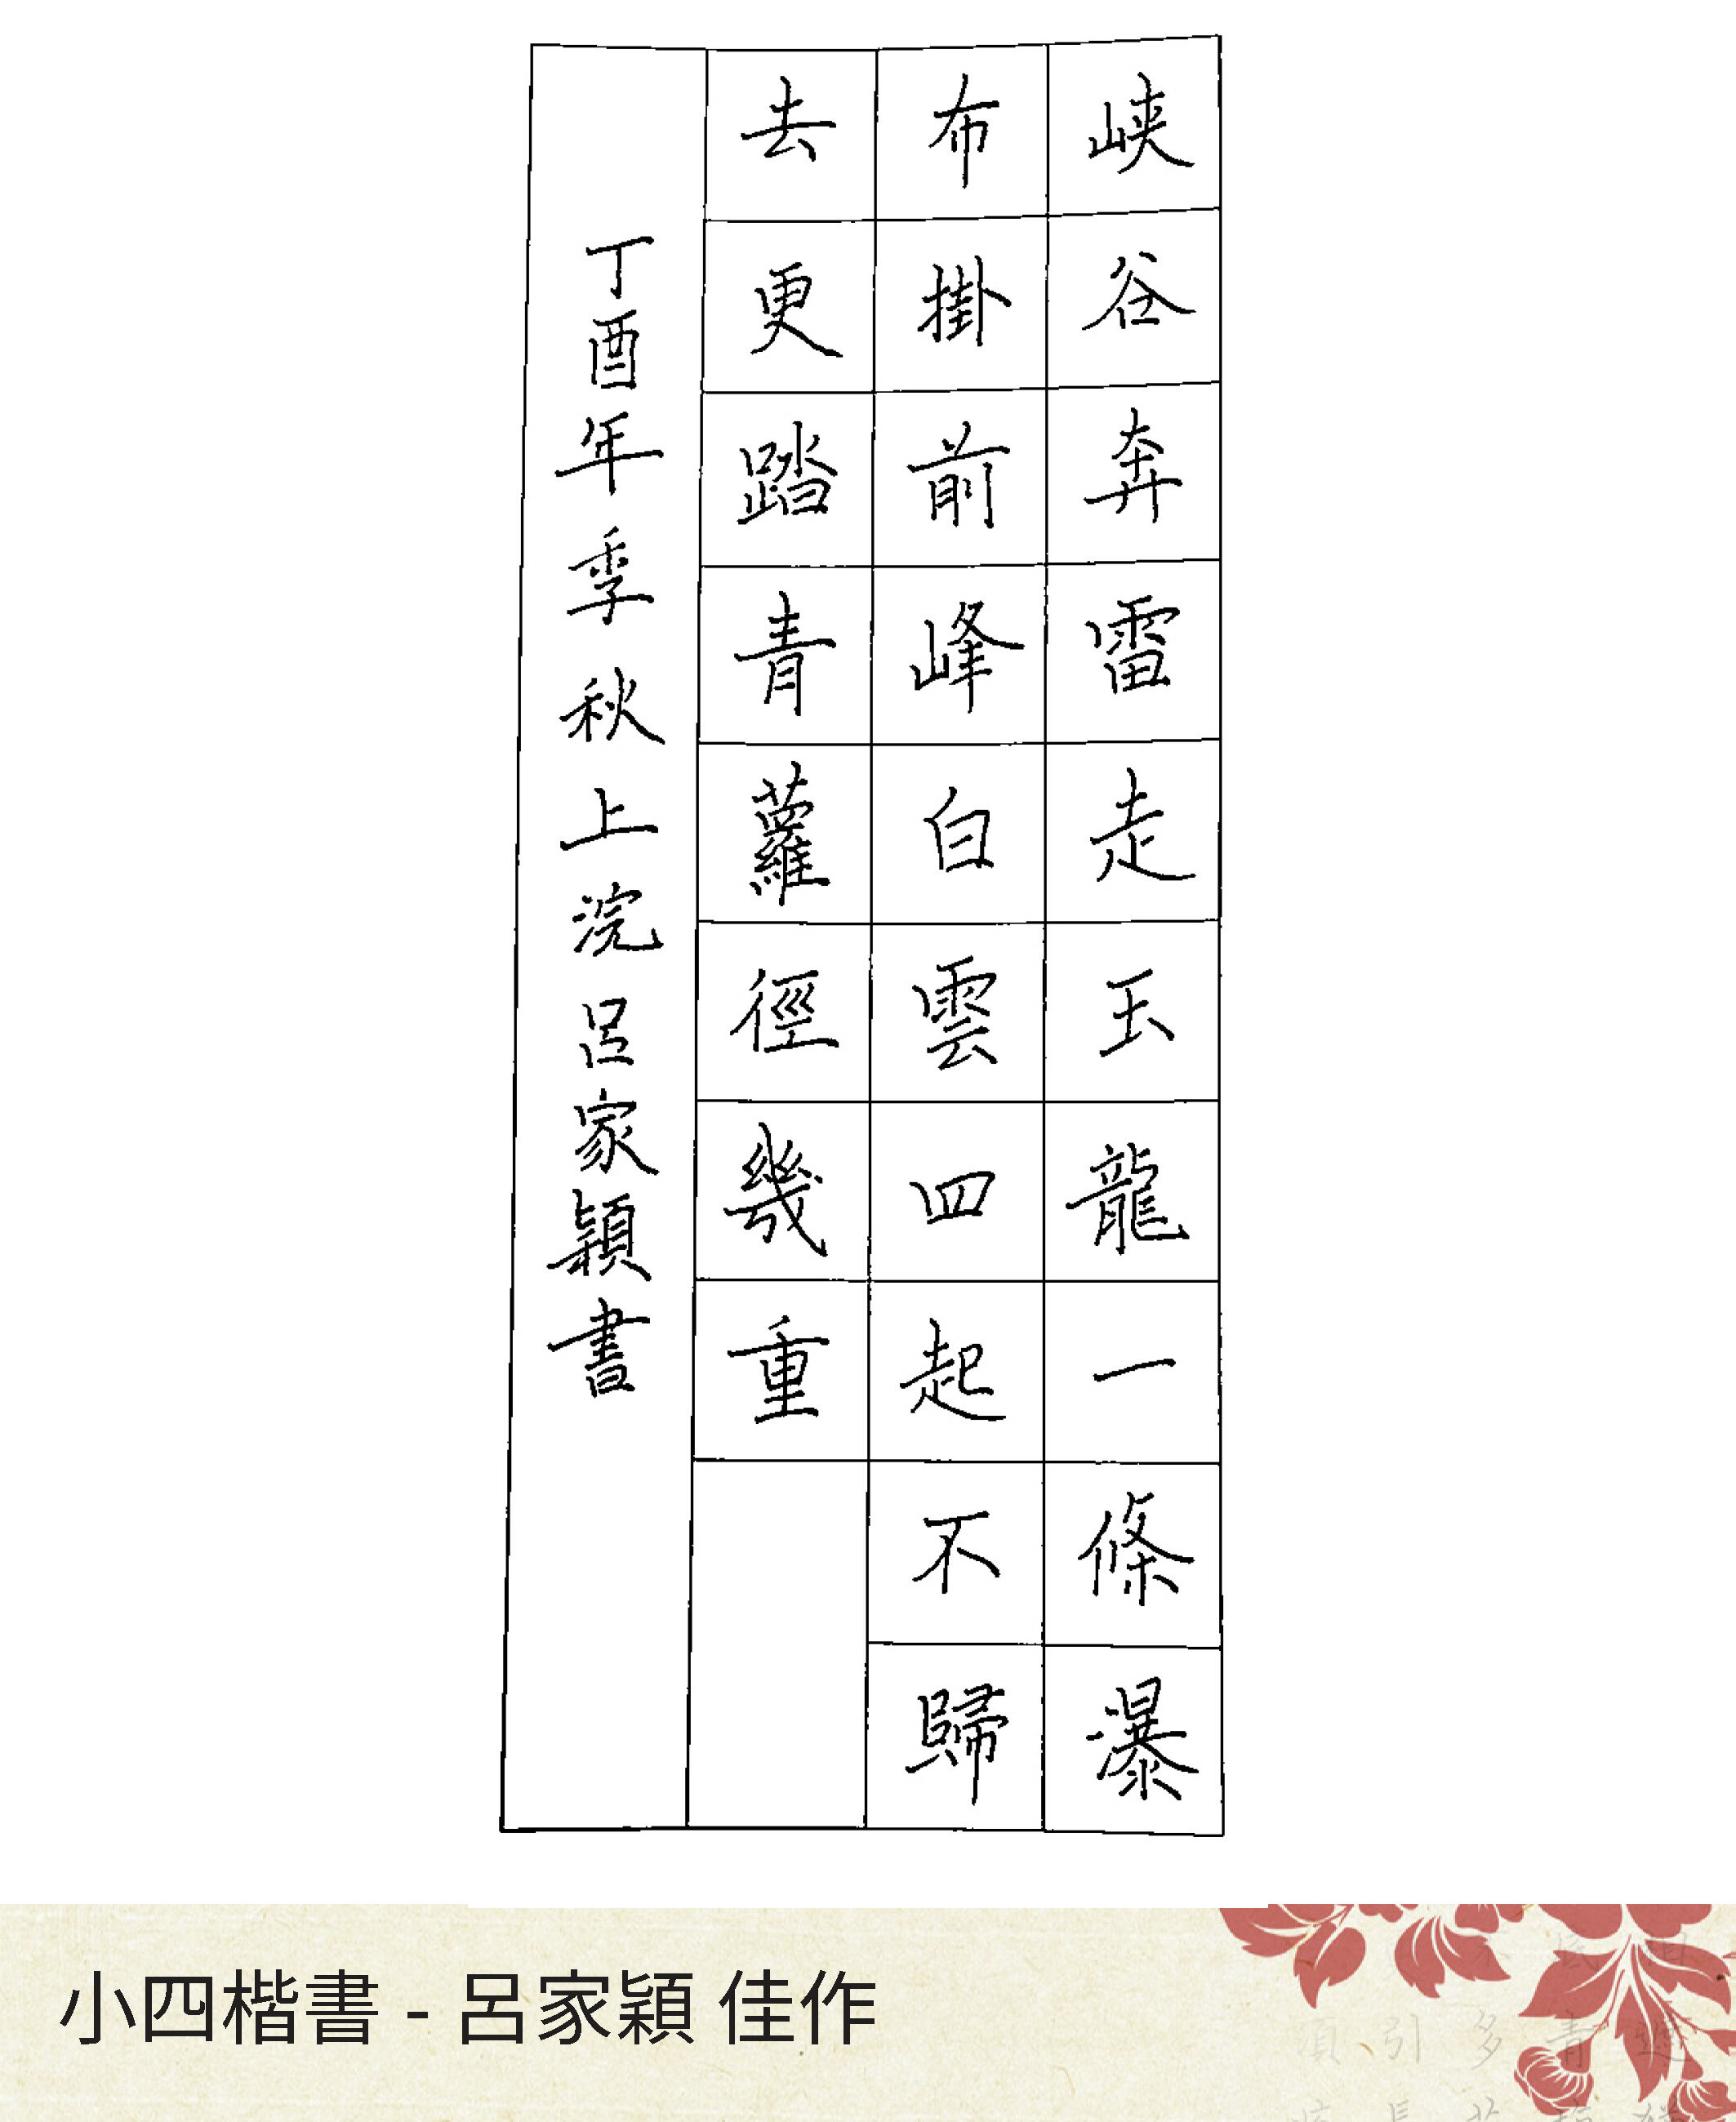 峡谷奔雷走玉龍一條瀑
布掛前峰白雲四起不歸
去更踏青蘿徑幾重
丁酉年季秋上浣呂家穎書
小四楷書 - 呂家穎 佳作